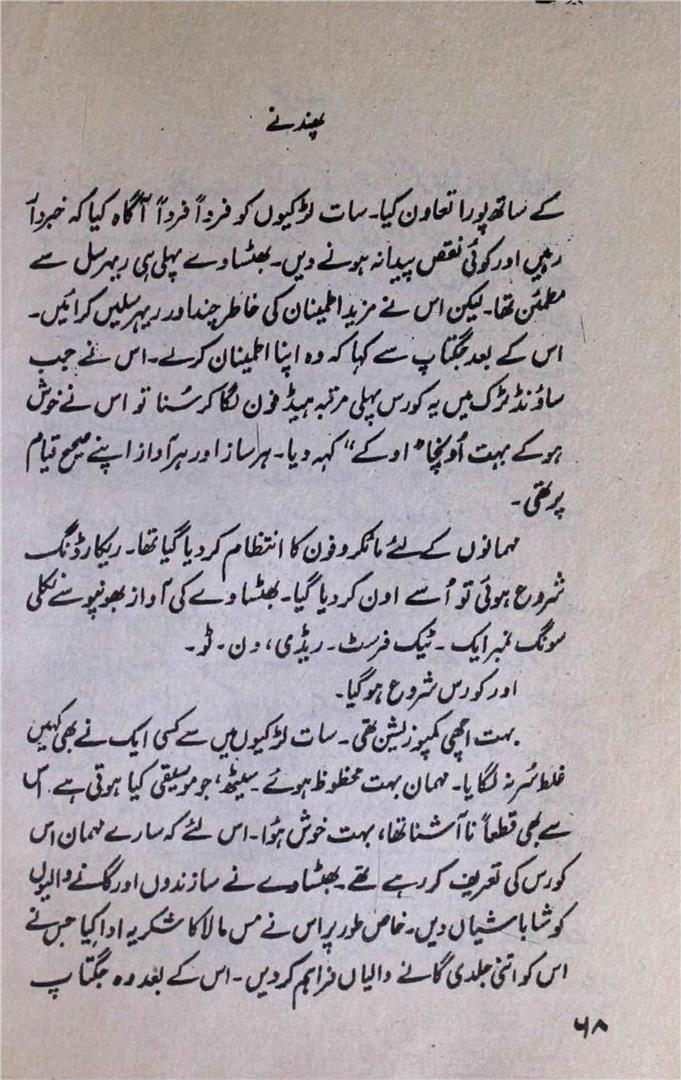 پھندنے
کے ساتھ پورا تعاون کیا۔ سات لڑکیوں کو فرداً فرداً آگاہ کیا کہ خبردار
رہیں اور کوئی نقص پیدا نہ ہونے دیں۔ بھٹساوے پہلی ہی ریہرسل سے
مطمئن تھا۔ لیکن اس نے مزید اطمینان کی خاطر چند اور ریہرسلیں کرائیں۔
اس کے بعد جگتاپ سے کہا کہ وہ اپنا اطمینان کرلے۔ اس نے جب
ساؤنڈ ٹرک میں یہ کورس پہلی مرتبہ ہیڈ فون لگا کر سُنا تو اس نے خوش
ہو کے بہت اُونچا ”اوکے“ کہہ دیا۔ ہر ساز اور ہر آواز اپنے صحیح قیام
پر تھی۔
مہمانوں کے لئے مائکروفون کا انتظام کر دیا گیا تھا۔ ریکارڈنگ
شروع ہوئی تو اُسے اون کر دیا گیا۔ بھٹساوے کی آواز بھونپو سے نکلی
سونگ نمبر ایک ۔ ٹیک فرسٹ ۔ ریڈی، ون ۔ ٹو ۔
اور کورس شروع ہو گیا۔
بہت اچھی کمپوزیشن تھی۔ سات لڑکیوں میں سے کسی ایک نے بھی کہیں
غلط سُر نہ لگایا۔ مہمان بہت محظوظ ہوئے۔ سیٹھ، جو موسیقی کیا ہوتی ہے اس
سے بھی قطعاً ناآشنا تھا، بہت خوش ہُوا۔ اس لئے کہ سارے مہمان اس
کورس کی تعریف کر رہے تھے۔ بھٹساوے نے سازندوں اور گانے والیوں
کو شاباشیاں دیں۔ خاص طور پر اس نے مس مالا کا شکریہ ادا کیا جس نے
اس کو اتنی جلدی گانے والیاں فراہم کر دیں۔ اس کے بعد وہ جگتاپ
۶۸